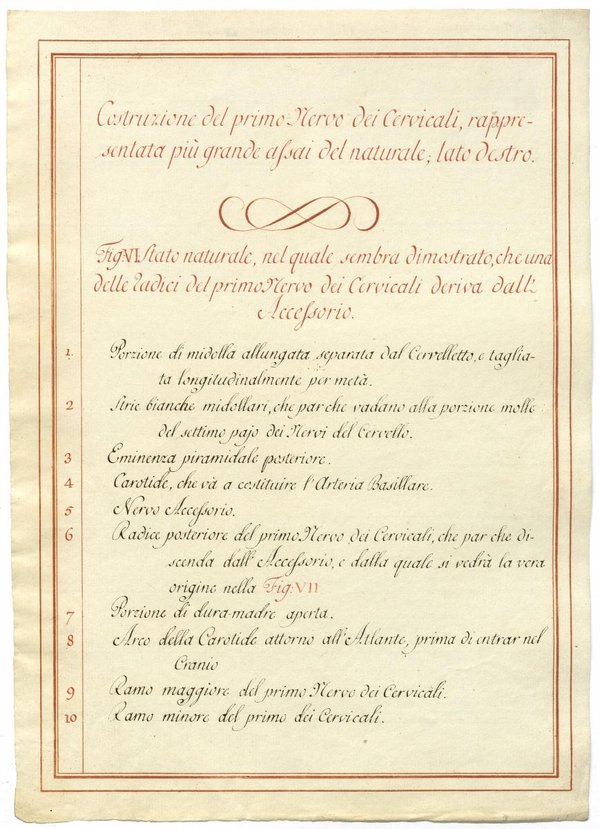 Costruzione del primo Nervo dei Cervicali, rappre-
sentata più grande assai del naturale; lato destro.
Fig:VI Stato naturale, nel quale sembra dimostrato, che una
delle radici del primo Nervo dei Cervicali deriva dall'
Accessorio.
1. Porzione di midolla allungata separata dal Cervelletto, e taglia-
ta longitudinalmente per metà.
2 Strie bianche midollari, che par che vadano alla porzione molle
del settimo pajo dei Nervi del Cervello.
3 Eminenza piramidale posteriore.
4 Carotide, che và a costituire l'Arteria Basillare.
5 Nervo Accessorio.
6 Radice posteriore del primo Nervo dei Cervicali, che par che di-
scenda dall'Accessorio, e dalla quale si vedrà la vera
origine nella Fig: VII
7 Porzione di dura-madre aperta.
8 Arco della Carotide attorno all'Atlante, prima di entrar nel
Cranio
9 Ramo maggiore del primo Nervo dei Cervicali.
10 Ramo minore del primo dei Cervicali.